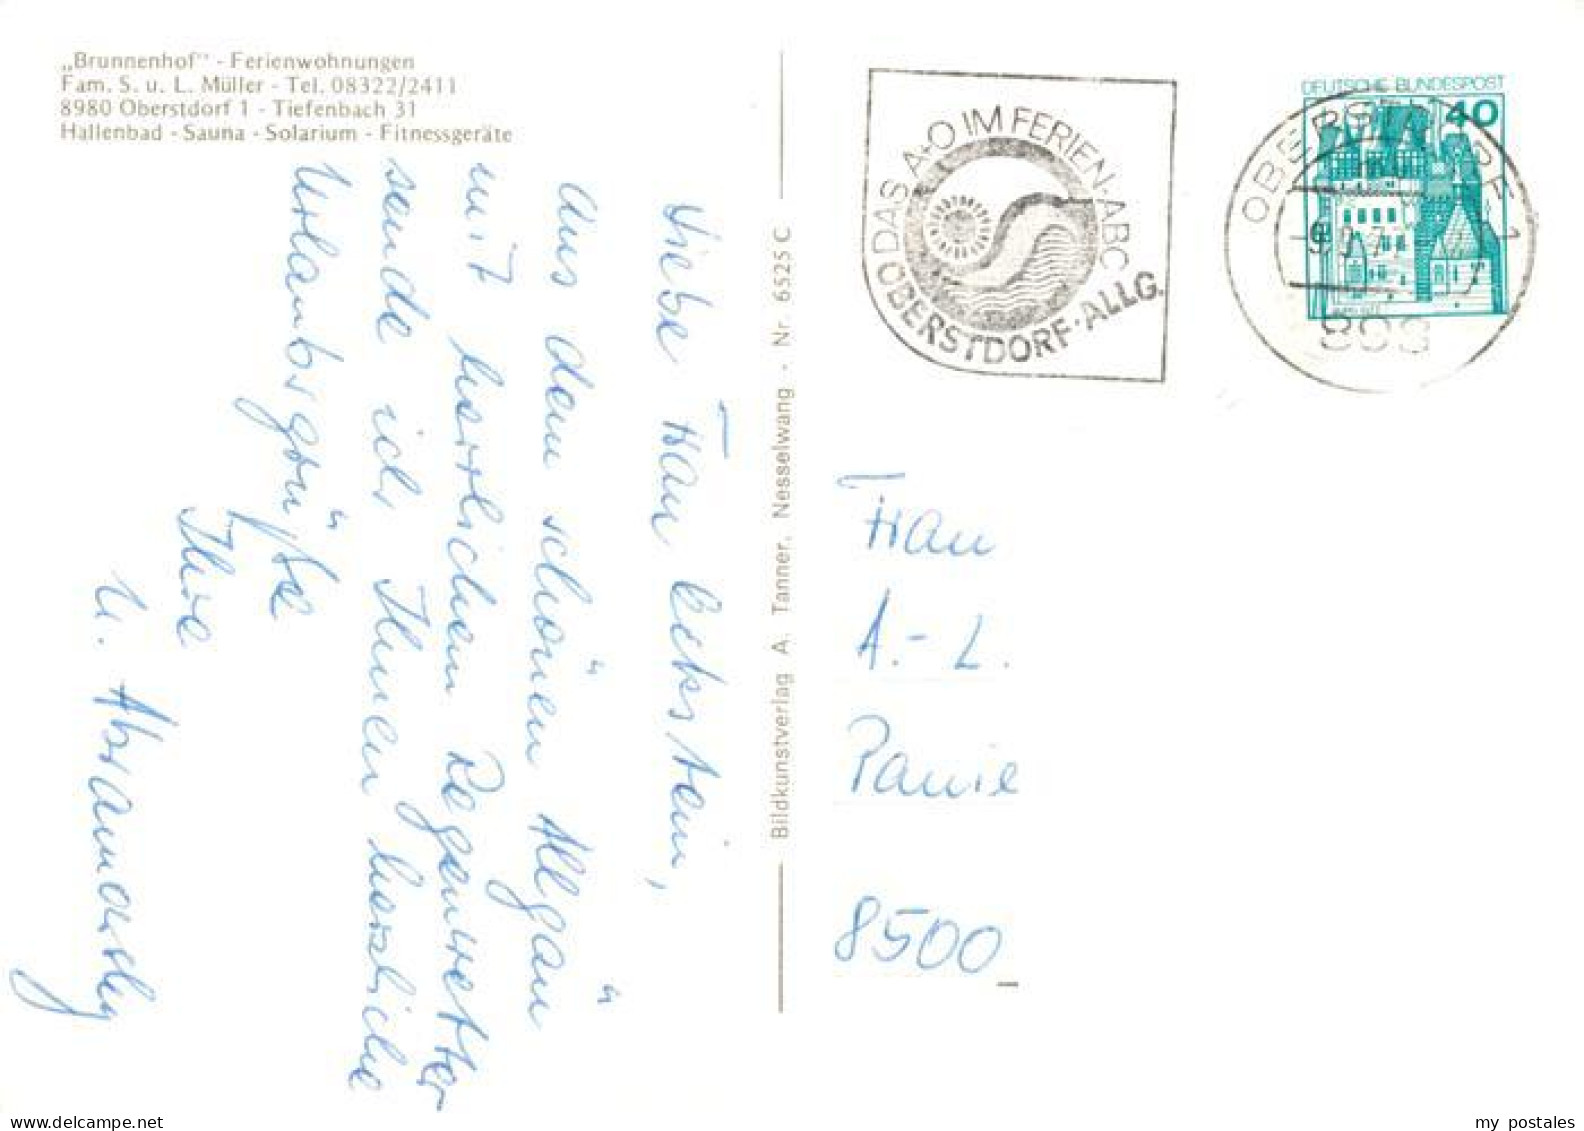 „Brunnenhof“ - Ferienwohnungen
Fam. S. u. L. Müller - Tel. 08322/2411
8980 Oberstdorf 1 - Tiefenbach 31
Hallenbad - Sauna - Solarium - Fitnessgeräte
Liebe Frau Eckstein,
Aus dem schönen Allgäu
mit herrlichem Regenwetter
sende ich Ihnen herzliche
Urlaubsgrüße
Ihre
U. Abramowsky
Bildkunstverlag A. Tanner, Nesselwang · Nr. 6525 C
DAS A+O IM FERIEN-ABC
OBERSTDORF·ALLG.
DEUTSCHE BUNDESPOST
40
OBERSTDORF 1
Frau
A.-L.
8500
my postales